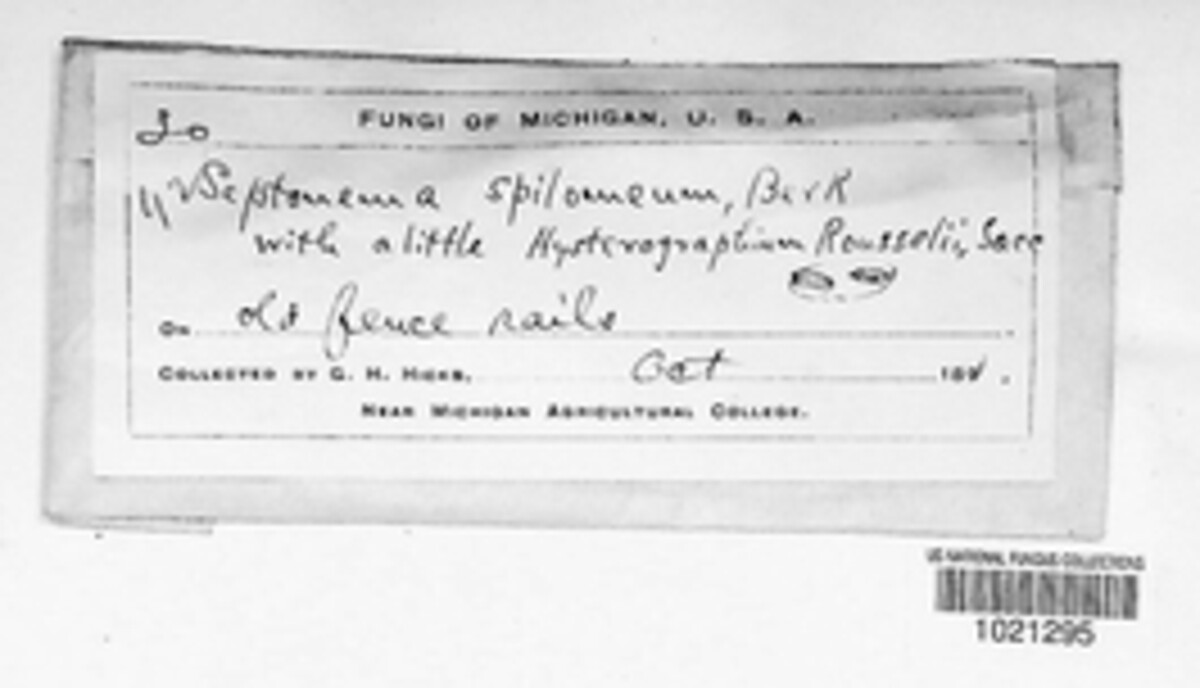 20
FUNGI OF MICHIGAN, U. S. A.
Septonema spilomeum, Berk
with a little Hysterographium Rousselii, Sacc
On old fence rails
COLLECTED BY G. H. HICKS, Oct
NEAR MICHIGAN AGRICULTURAL COLLEGE.
US NATIONAL FUNGUS COLLECTIONS
1021295